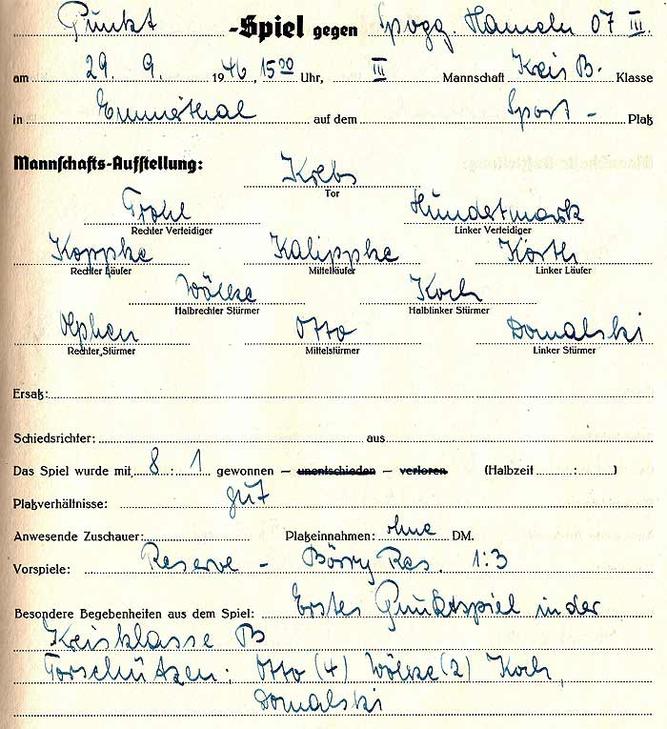 Punkt -Spiel gegen Spvgg. Hameln 07 III.
am 29. 9. 1946, 15⁰⁰ Uhr, III Mannschaft Kreis B. Klasse
in Emmerthal auf dem Sport- Platz
Mannschafts-Aufstellung:
Krebs
Tor
Frohl Hundertmark
Rechter Verteidiger Linker Verteidiger
Koppke Kalippke Körth
Rechter Läufer Mittelläufer Linker Läufer
Wölke Koch
Halbrechter Stürmer Halblinker Stürmer
Otto Domalski
Rechter Stürmer Mittelstürmer Linker Stürmer
Ersatz:
Schiedsrichter: aus
Das Spiel wurde mit 8 : 1 gewonnen — unentschieden — verloren (Halbzeit : )
Platzverhältnisse: gut
Anwesende Zuschauer: Platzeinnahmen: ohne DM.
Vorspiele: Reserve - Börry Res. 1:3
Besondere Begebenheiten aus dem Spiel: Erstes Punktspiel in der
Kreisklasse B
Torschützen: Otto (4) Wölke (2) Koch,
Domalski